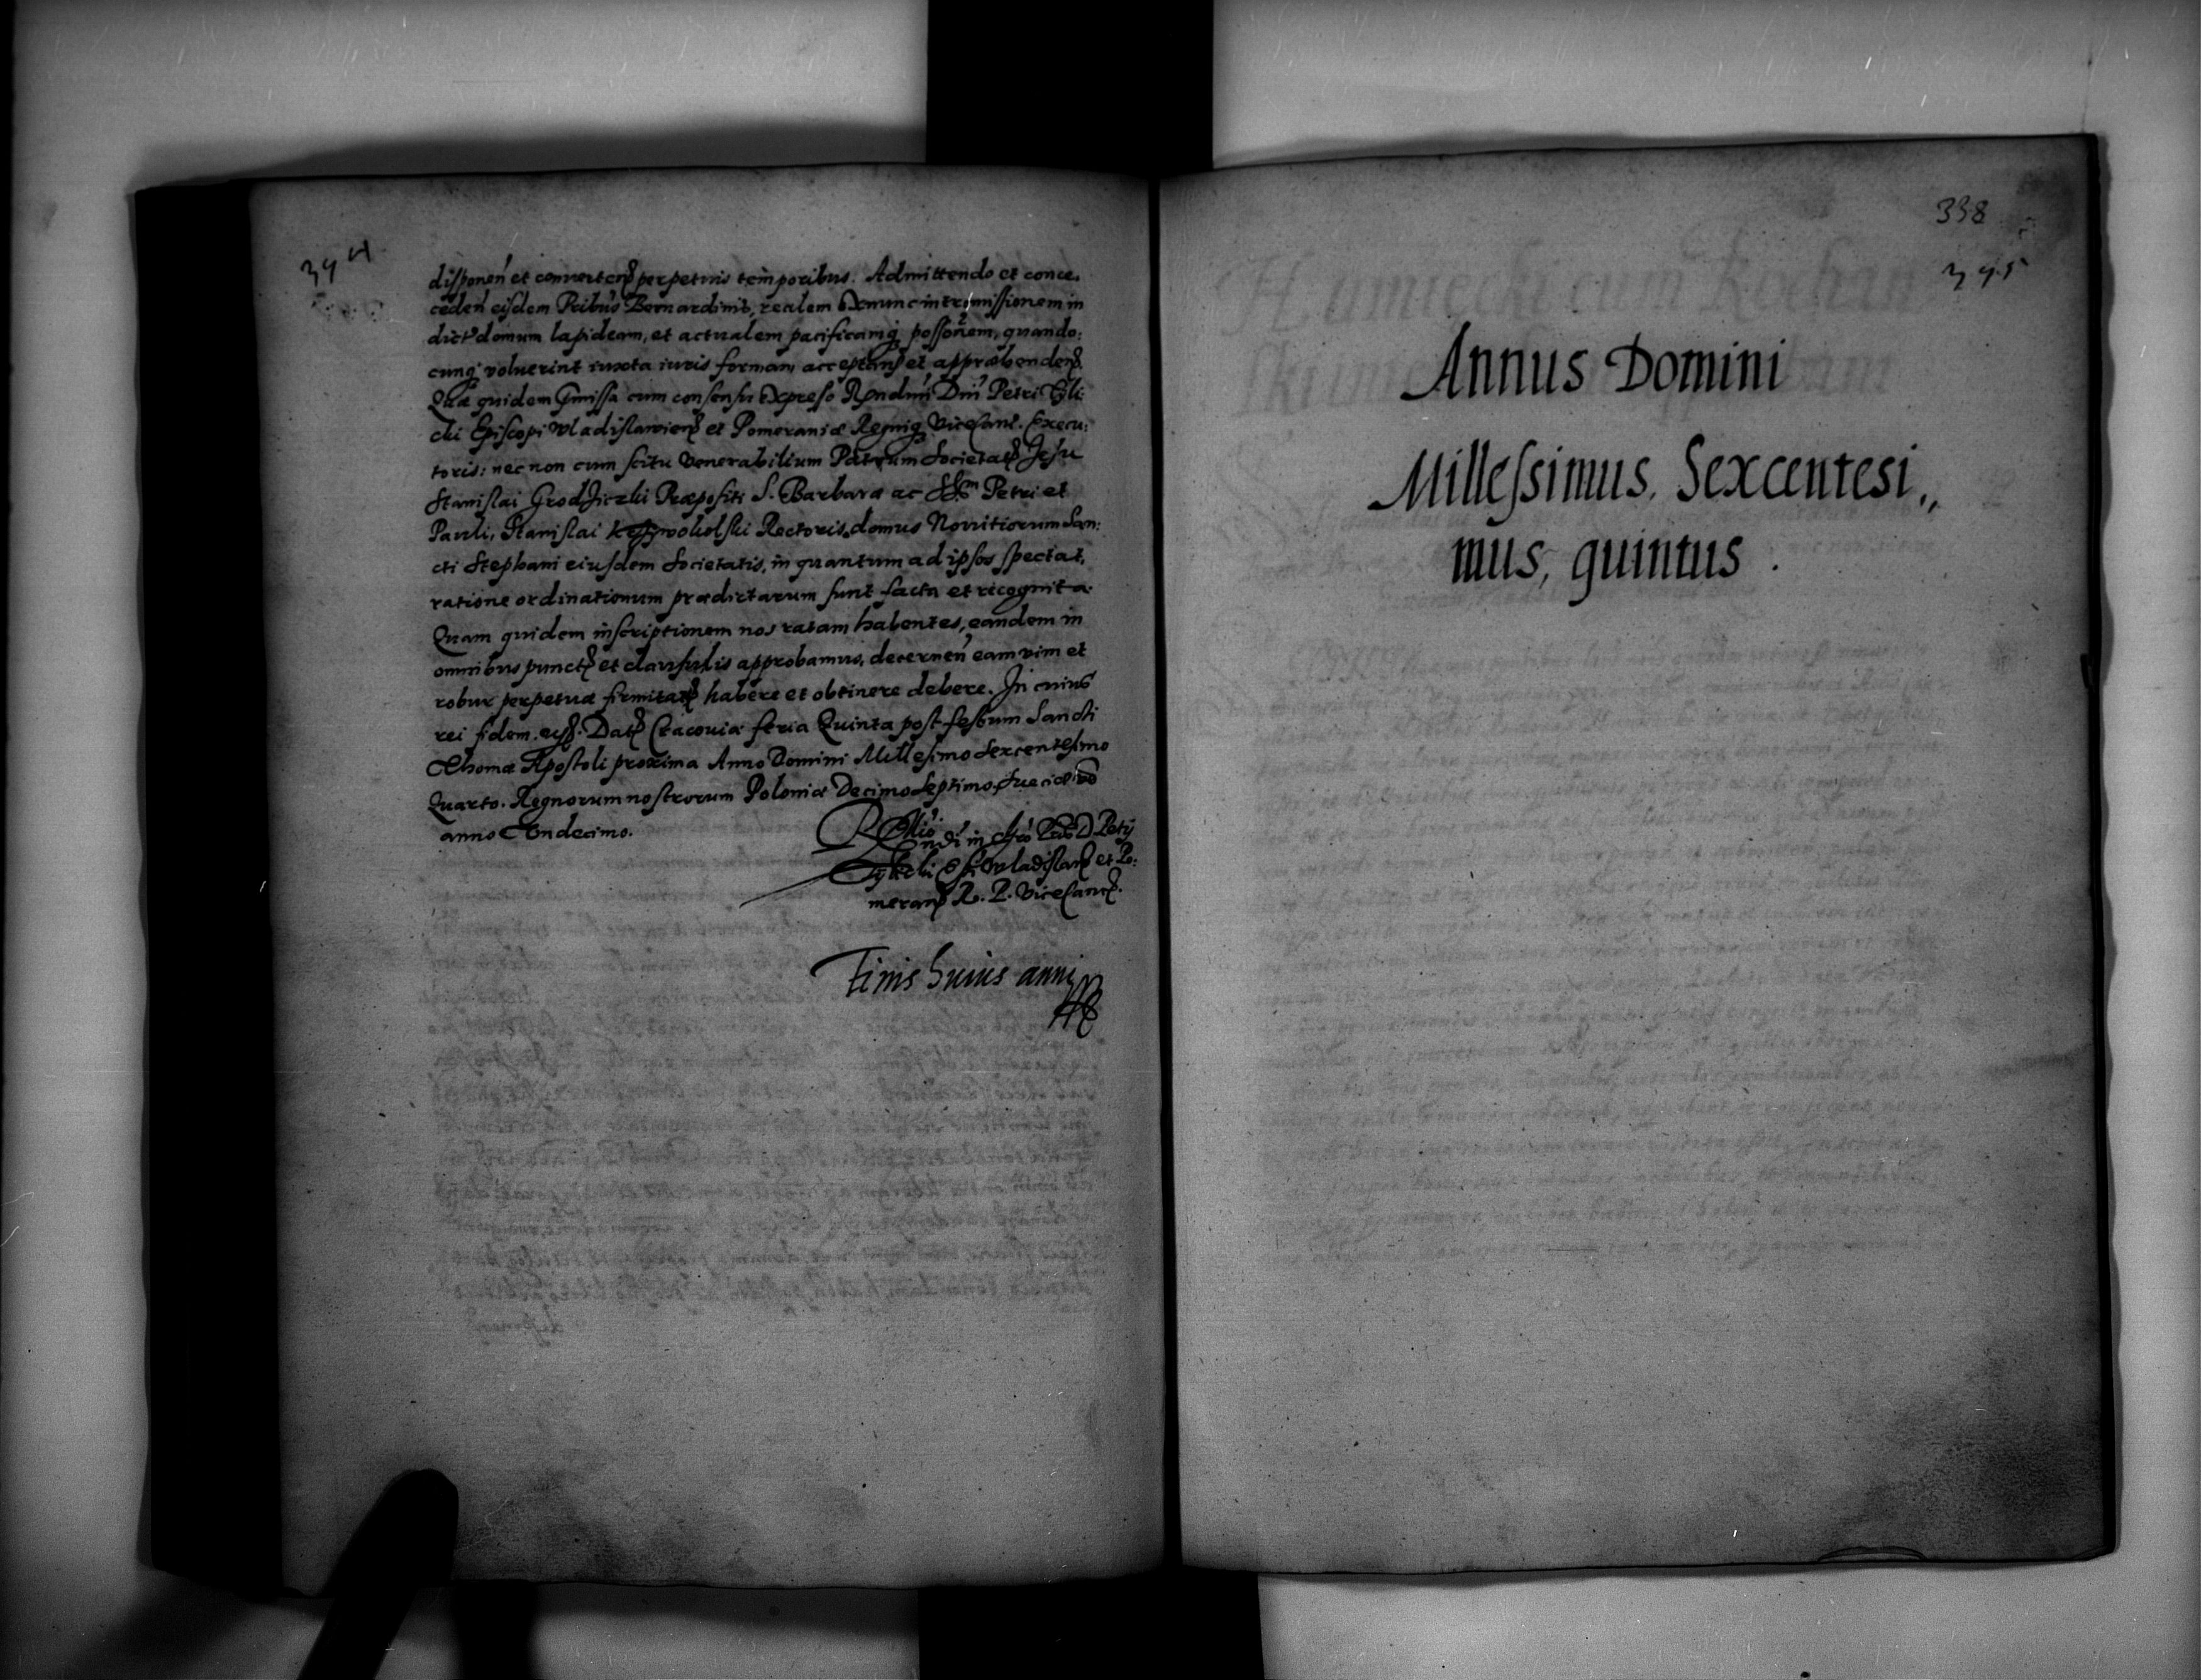 344
disponen et converten perpetuis temporibus. Admittendo et conce,
ceden eisdem Pribus Bernardinis, realem Exnunc intromissionem in
dict domum lapideam, et actualem pacificamq possonem, quando:
cunq voluerint iuxta iuris formam acceptan et appræhenden.
Quæ quidem pmissa cum consensu Expresso Rndmi Dni Petri Tili:
cki Episcopi Vladislavien et Pomeraniæ Regniq ViceCanc. Execu:
toris: nec non cum scitu Venerabilium Patrum Societat Jesu
Stanislai Grodziczki Præpositi S. Barbaræ ac SSm Petri et
Pauli, Stanislai Rectoris domus Novitiorum San:
cti Stephani eiusdem Societatis, in quantum ad ipsos spectat,
ratione ordinationum prædictarum sunt facta et recognita.
Quam quidem inscriptionem nos ratam habentes, eandem in
omnibus punct et clausulis approbamus, decernen eam vim et
robur perpetuæ firmitat habere et obtinere debere. In cuius
rei fidem. eiss. Dat Cracoviæ feria Quinta post festum Sancti
Thomæ Apostoli proxima Anno Domini Millesimo Sexcentesimo
Quarto. Regnorum nostrorum Poloniæ Decimo Septimo, Sueciæ vo
anno Undecimo.
Rllio
ndi in Chro D Petry
Tylicki Ep Vladislavien et Po:
meran R. P. ViceCanc.
Finis huius anni
338
345
Annus Domini
Millessimus. Sexcentesi,,
mus, quintus.